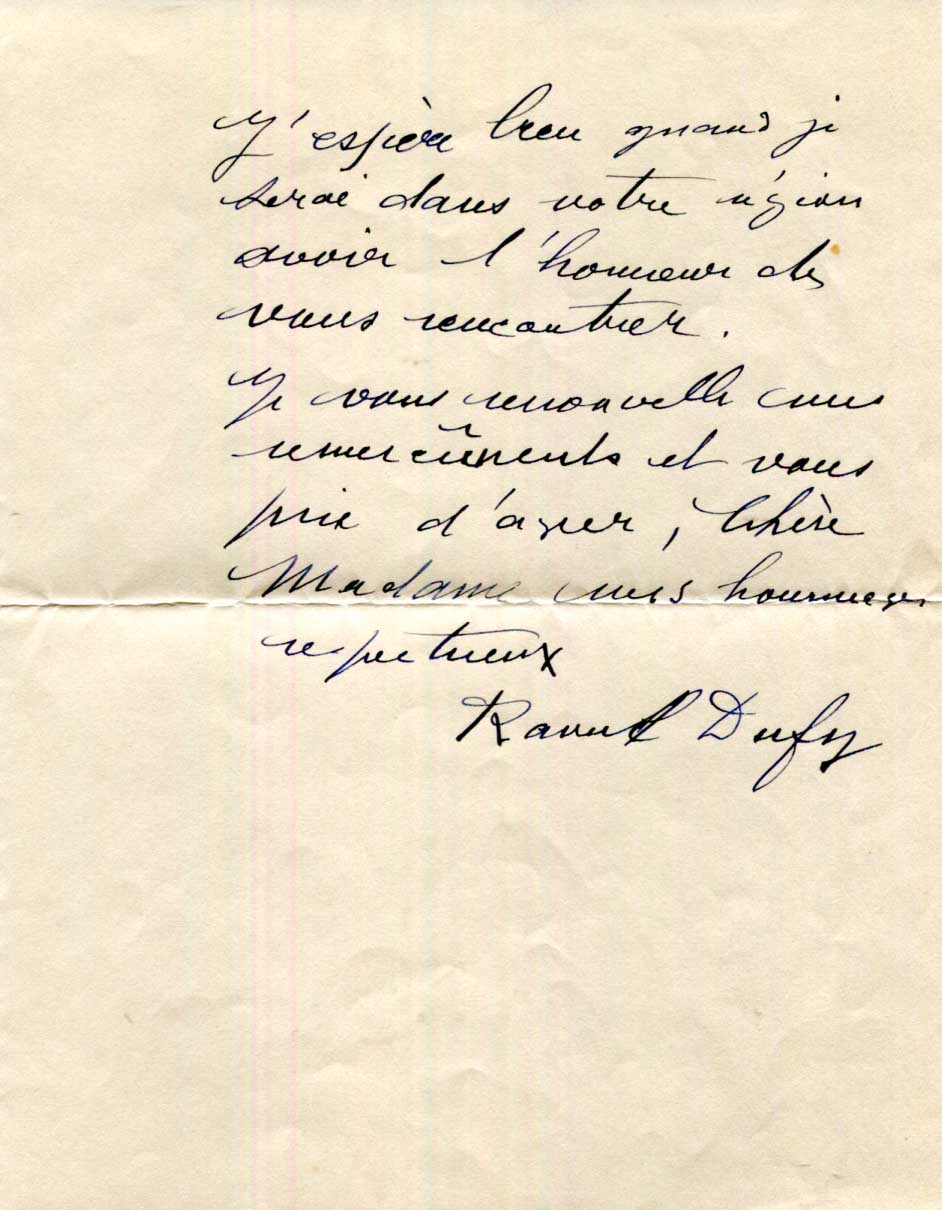 J'espère bien quand je
serai dans votre région
avoir l'honneur de
vous rencontrer.
Je vous renouvelle mes
remerciements et vous
prie d'agréer, Chère
Madame mes hommages
respectueux
Raoul Dufy